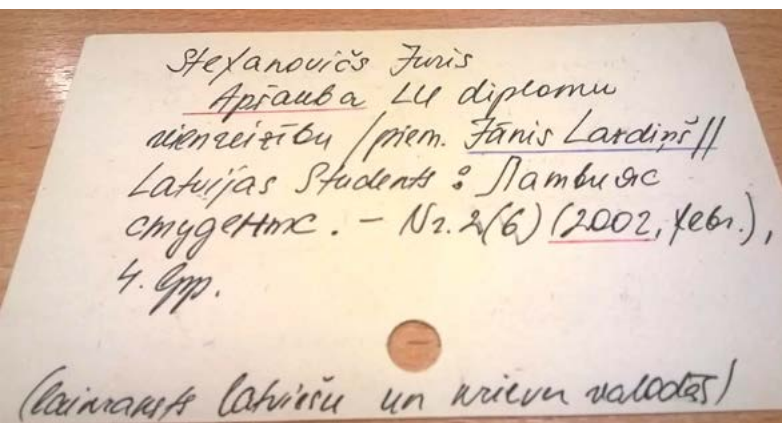 Stefanovičs Juris
Apšauba LU diplomu
vienreizību /piem. Jānis Lardiņš//
Latvijas Students : Латвияс
студентс. – Nr. 2(6) (2002, febr.),
4. lpp.
(laikraksts latviešu un krievu valodās)